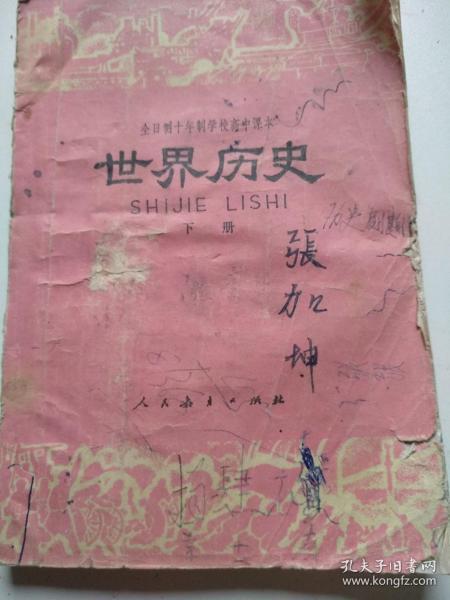 全日制十年制学校高中课本
世界历史
SHIJIE LISHI
下册
历史
張加坤
人民教育出版社
孔夫子旧书网
www.kongfz.com